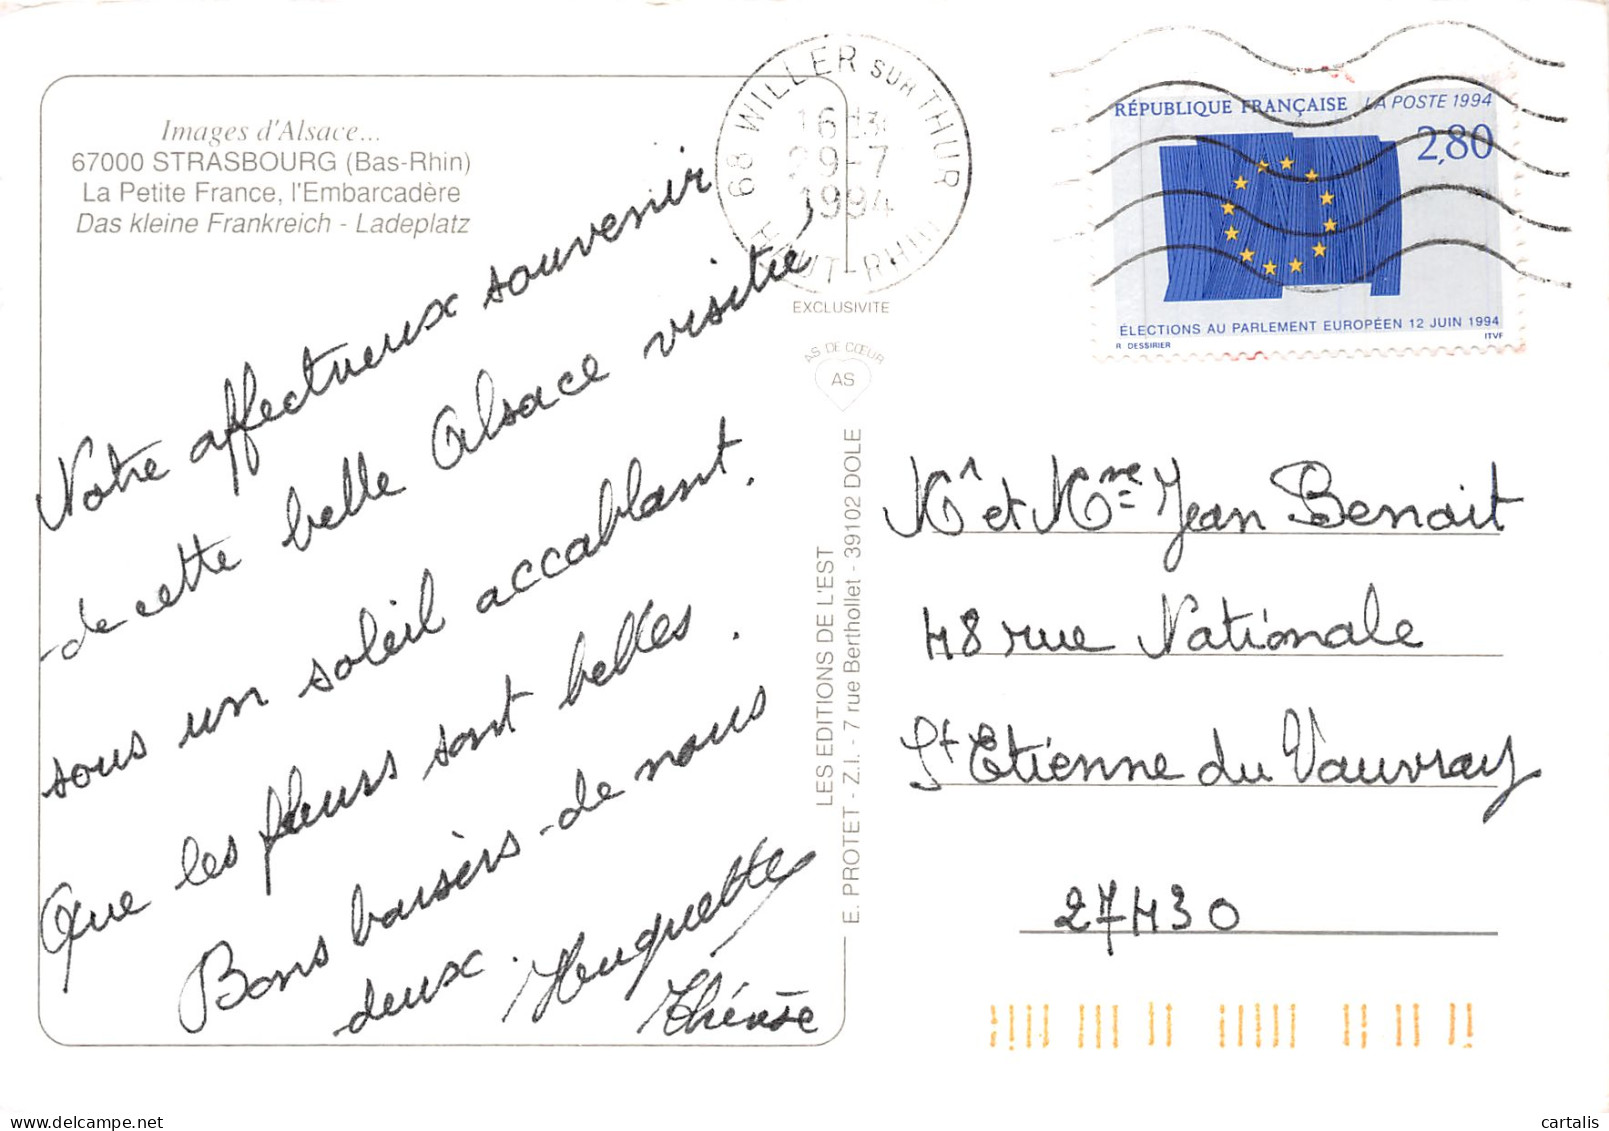 Images d'Alsace...
67000 STRASBOURG (Bas-Rhin)
La Petite France, l'Embarcadère
Das kleine Frankreich - Ladeplatz
Notre affectueux souvenir
de cette belle Alsace visitée
sous un soleil accablant.
Que les fleurs sont belles.
Bons baisers de nous
deux. Huguette
Thérèse
68 WILLER SUR THUR
16H
29-7
1994
HAUT-RHIN
EXCLUSIVITE
AS DE CŒUR
AS
LES EDITIONS DE L'EST
E. PROTET - Z.I. - 7 rue Berthollet - 39102 DOLE
RÉPUBLIQUE FRANÇAISE LA POSTE 1994
2,80
ÉLECTIONS AU PARLEMENT EUROPÉEN 12 JUIN 1994
R DESSIRIER ITVF
Mr et Mme Jean Benoit
48 rue Nationale
St Etienne du Vauvray
27430
cartalis